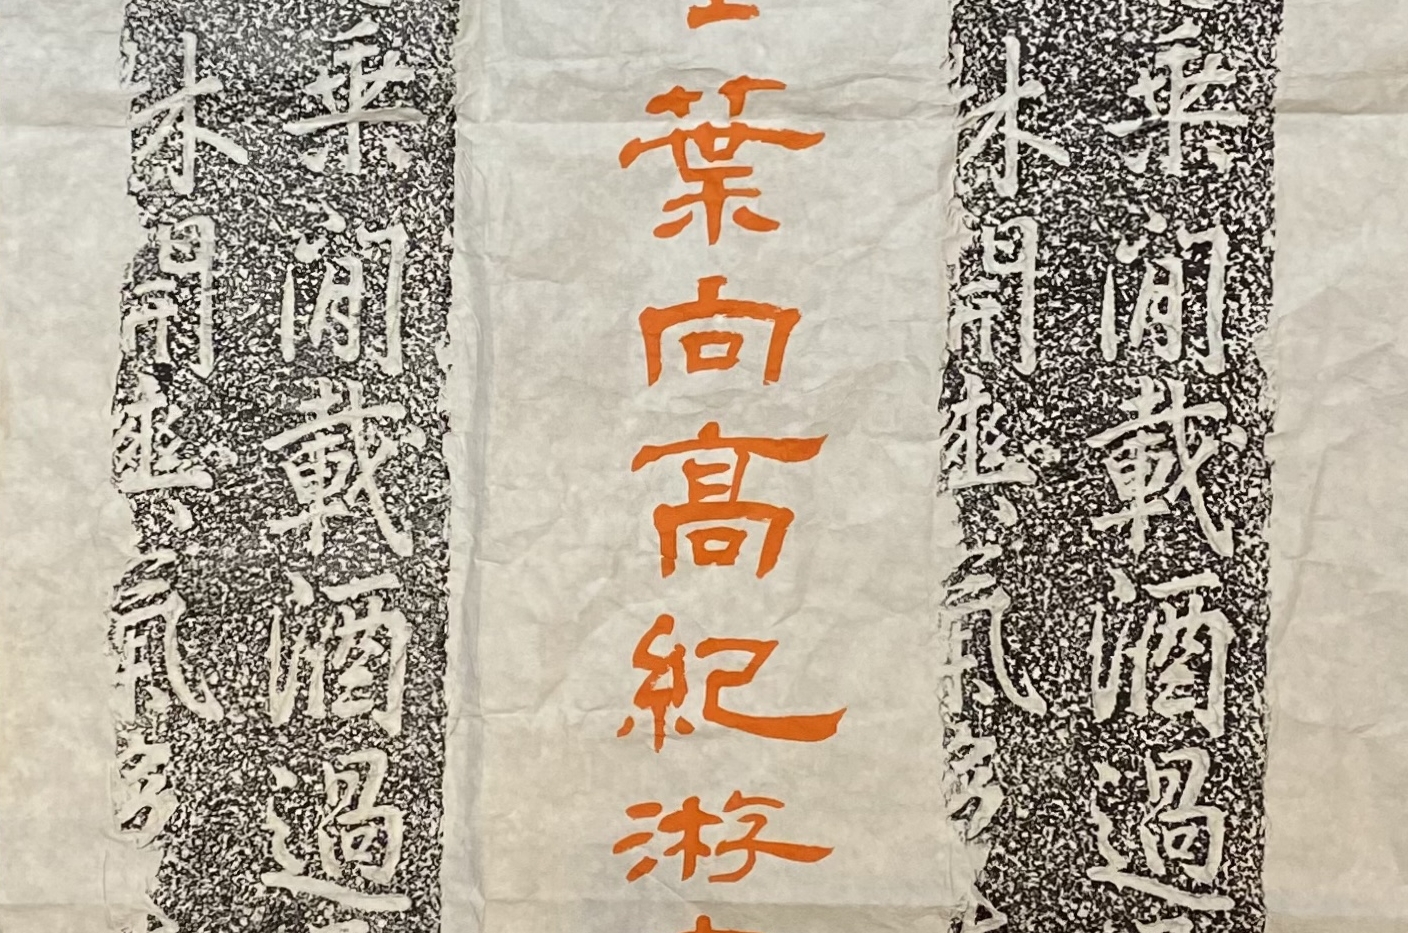 乘閒載酒過
林開爽氣多
葉向高紀游
乘閒載酒過
林開爽氣多